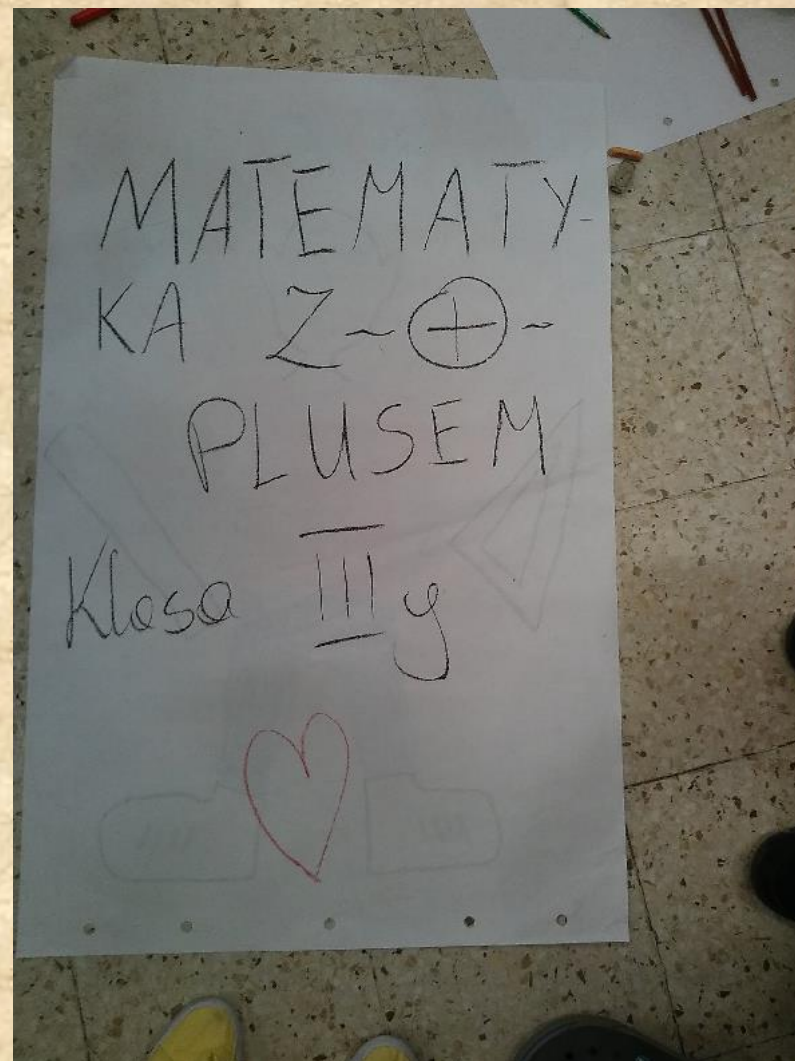 MATEMATY-
KA Z ~ + ~
PLUSEM
Klasa III y